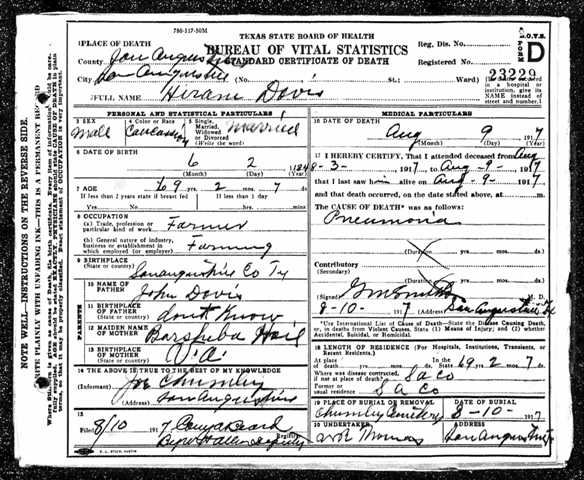 786-317-50M
TEXAS STATE BOARD OF HEALTH
BUREAU OF VITAL STATISTICS
STANDARD CERTIFICATE OF DEATH
B.O.V.S.
FORM D
Reg. Dis. No.
Registered No.
23229
1 PLACE OF DEATH
County San Augustine
City San Augustine (No. St.: Ward)
(If death occurred in a hospital or institution, give its NAME instead of street and number.)
2 FULL NAME Hiram Davis
PERSONAL AND STATISTICAL PARTICULARS
3 SEX Male
4 Color or Race Caucasian
5 Single, Married, Widowed or Divorced (Write the word) Married
6 DATE OF BIRTH
6 2 184
(Month) (Day) (Year)
7 AGE 69 2 mos. 7 ds.
If less than 2 years state if breast fed If less than 1 day
Yes No hrs. min.
8 OCCUPATION
(a) Trade, profession or particular kind of work Farmer
(b) General nature of industry, business or establishment in which employed (or employer) Farming
9 BIRTHPLACE
(State or country) San Augustine Co Tx
PARENTS
10 NAME OF FATHER John Davis
11 BIRTHPLACE OF FATHER (State or country) dont know
12 MAIDEN NAME OF MOTHER Barsheba Hail
13 BIRTHPLACE OF MOTHER (State or country) Va
14 THE ABOVE IS TRUE TO THE BEST OF MY KNOWLEDGE
(Informant) Joe Chumley
(Address) San Augustine
15
Filed 8/10 1917
Registrar
MEDICAL PARTICULARS
16 DATE OF DEATH
Aug 9 1917
(Month) (Day) (Year)
17 I HEREBY CERTIFY, That I attended deceased from Aug
8-3- 1917 to Aug-9- 1917
that I last saw him alive on Aug-9- 1917
and that death occurred, on the date stated above, at m.
The CAUSE OF DEATH* was as follows:
Pneumonia
(Duration) yrs. mos. ds.
Contributory
(Secondary)
(Duration) yrs. mos. ds.
(Signed) M. D.
8-10- 1917 (Address) San Augustine, Tx
*Use International List of Cause of Death—State the Disease Causing Death, or, in deaths from Violent Causes, State (1) Means of Injury; and (2) whether Accidental, Suicidal, or Homicidal.
18 LENGTH OF RESIDENCE (For Hospitals, Institutions, Transients, or Recent Residents.)
At place of death yrs. mos. ds. In the State 69 yrs. 2 mos. 7 ds.
Where was disease contracted, if not at place of death? S a Co
Former or usual residence S a Co
19 PLACE OF BURIAL OR REMOVAL Chumley Cemetery
DATE OF BURIAL 8-10- 1917
20 UNDERTAKER Thomas
ADDRESS San Augustine
NOTE WELL—INSTRUCTIONS ON THE REVERSE SIDE.
WRITE PLAINLY WITH UNFADING INK—THIS IS A PERMANENT RECORD